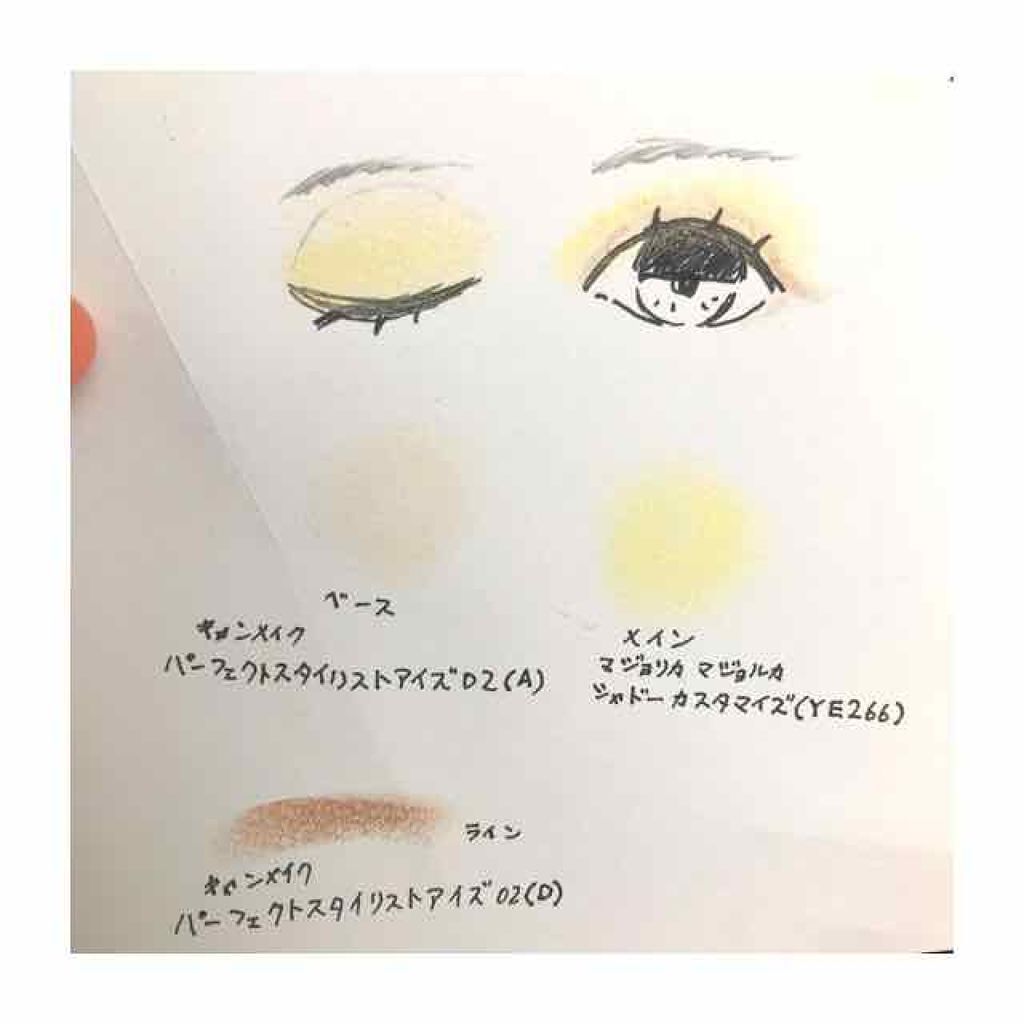 ベース
キャンメイク
パーフェクトスタイリストアイズ02(A)
メイン
マジョリカ マジョルカ
シャドーカスタマイズ(YE266)
ライン
キャンメイク
パーフェクトスタイリストアイズ02(D)